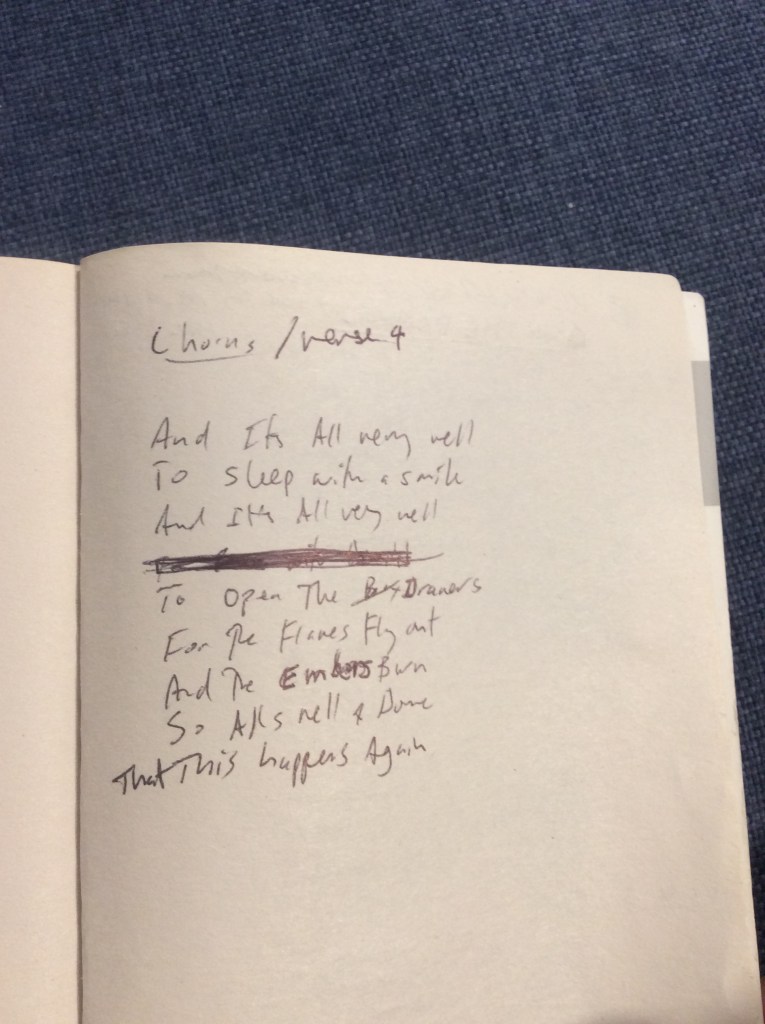 Chorus / verse 4
And Its All very well
To sleep with a smile
And It's All very well
To Open The Drawers
For The Flames Fly out
And The Embers Burn
So All's well & Done
That This happens Again